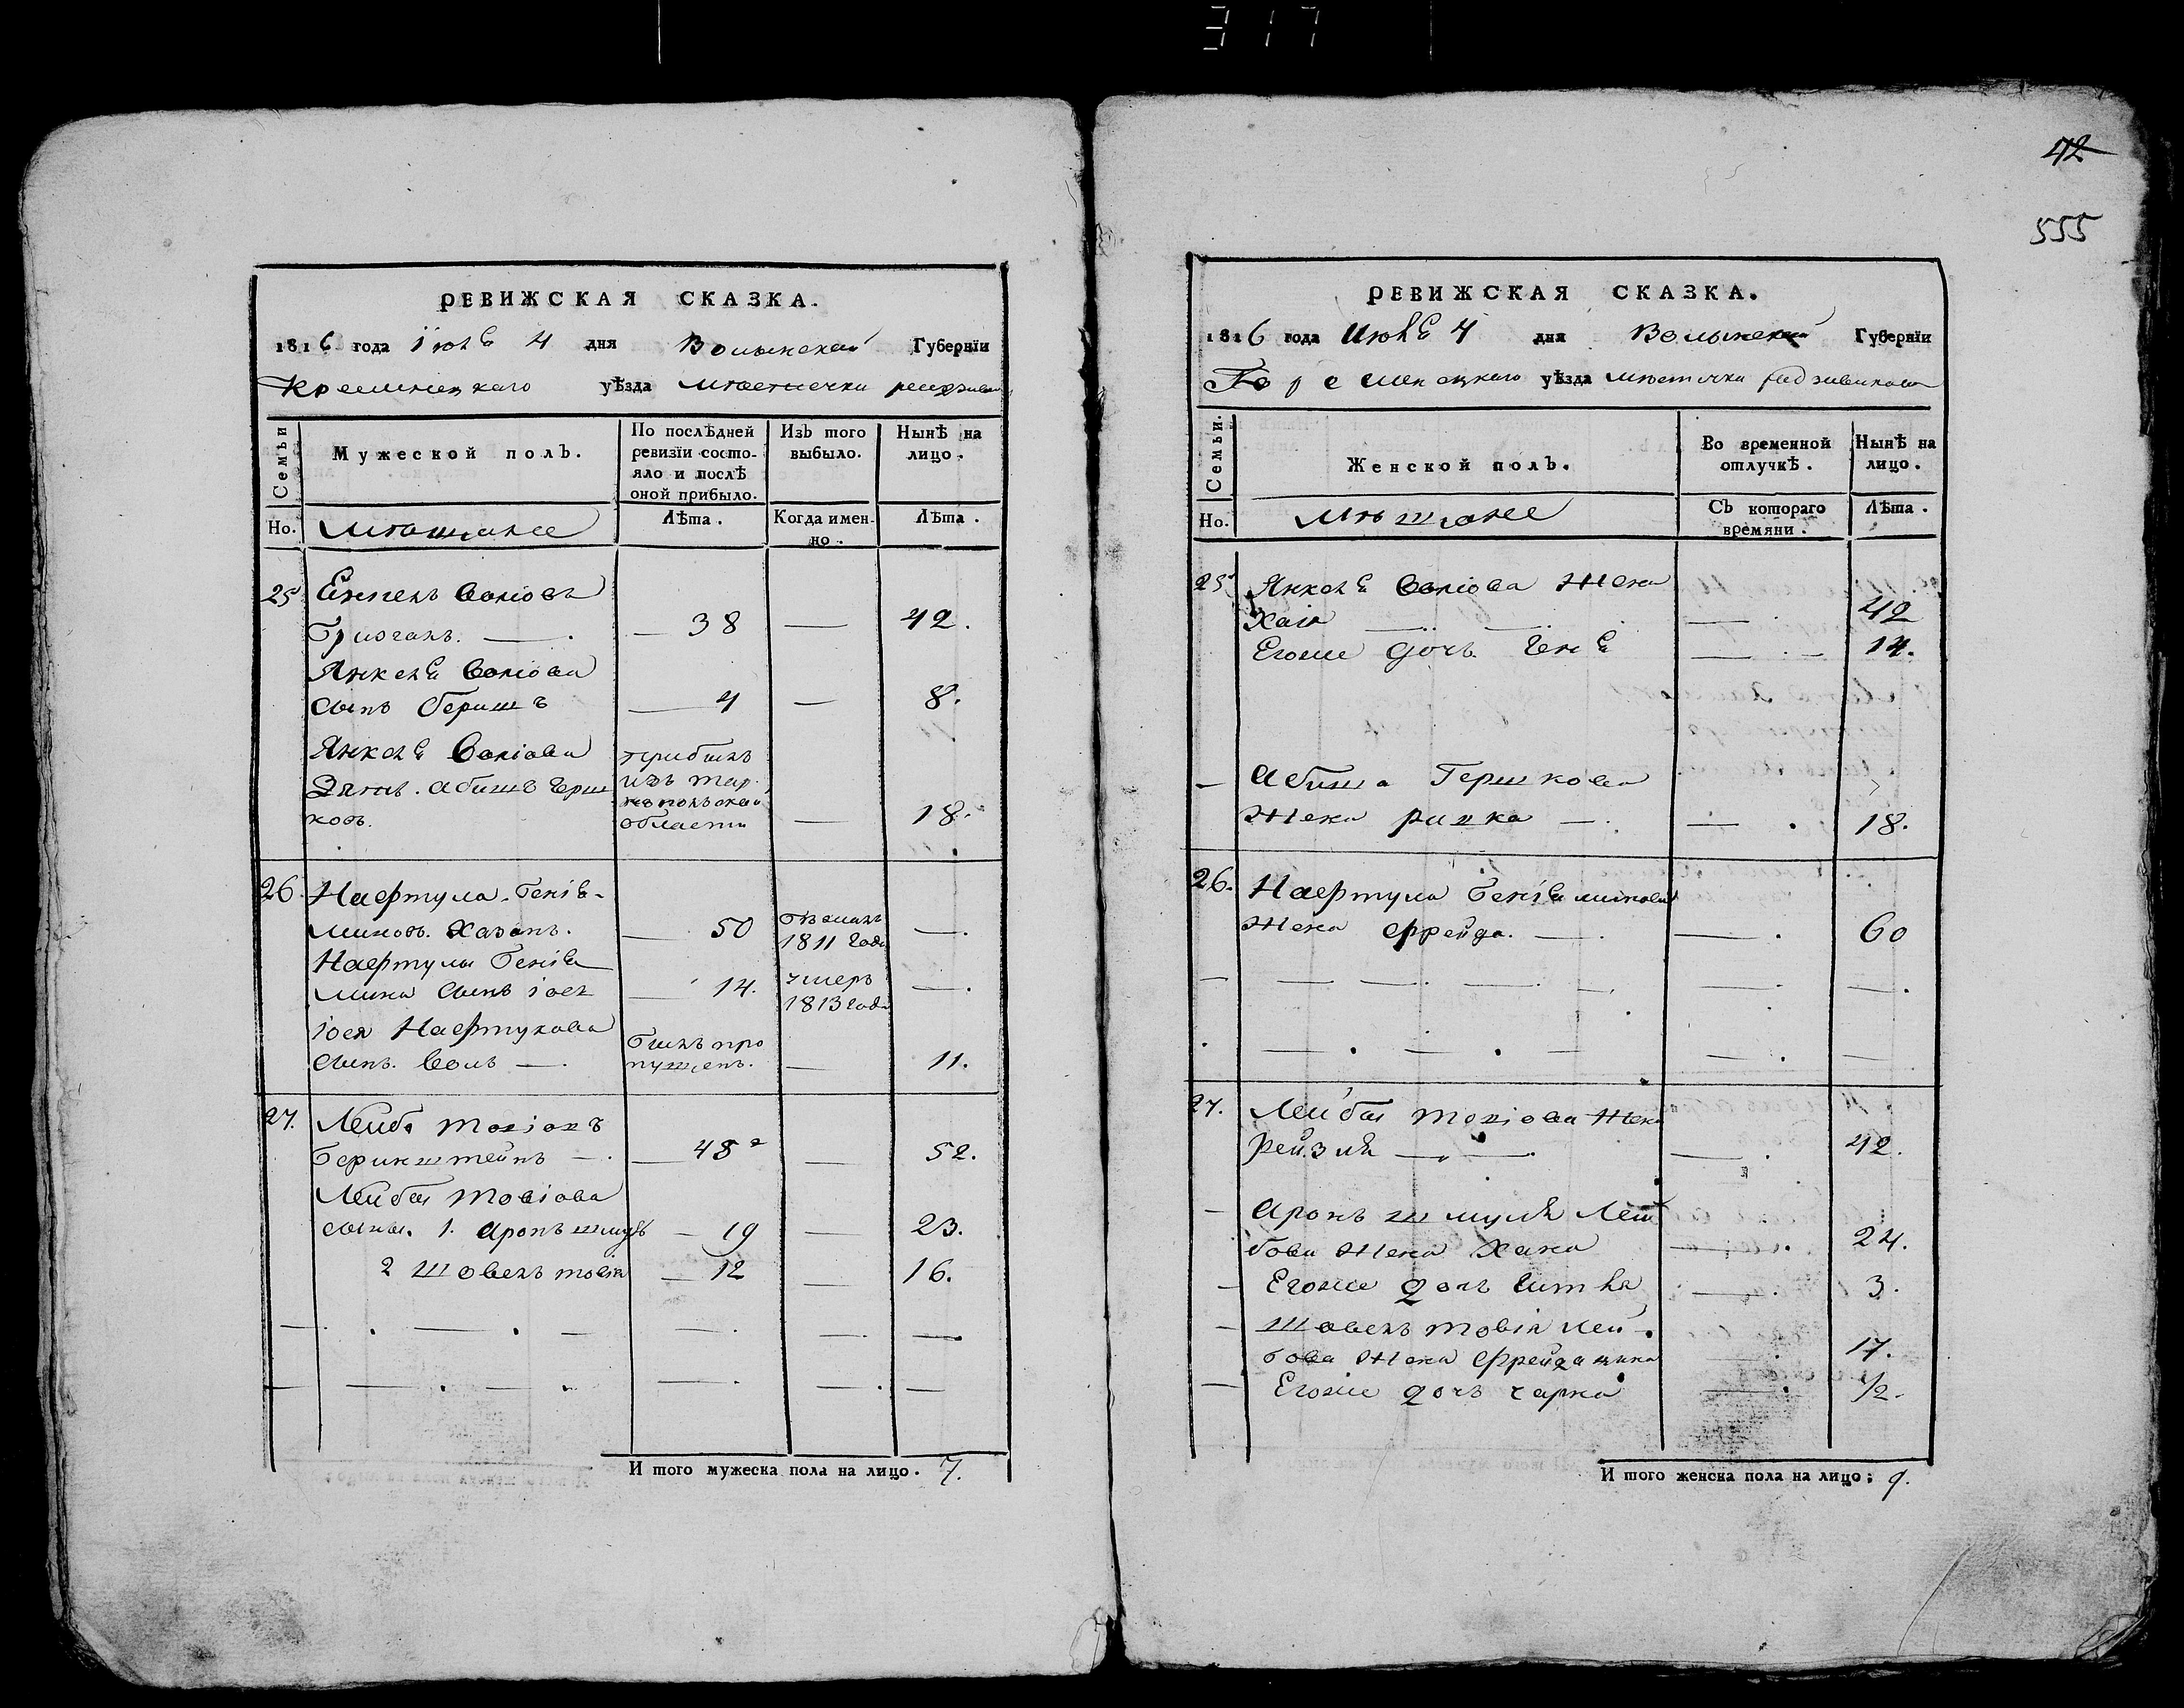 317
42
555
РЕВИЖСКАЯ СКАЗКА.
1816 года Іюля 4 дня Волынской Губернїи
Кременецкаго уѣзда мѣстечки
Семьи
Мужеской полъ.
По послѣдней ревизїи состо-
яло и послѣ
оной прибыло.
Изъ того
выбыло.
Нынѣ на
лицо.
Но.
мѣщане
Лѣта.
Когда имен-
но.
Лѣта.
25
38 — 42.
Янкеля
сынъ Беришъ — 4 — 8.
Янкеля
Зять. Абишъ Герш
ковъ.
прибылъ
изъ Тар
нопольской
области — 18.
26. Нафтула Бенїя-
миновъ. Хазанъ. — 50
бѣжалъ
1811 года —.
Нафтулы Бенїя
мина сынъ іось — 14.
умеръ
1813 года —.
іося Нафтулова
сынъ. —
былъ про
пущенъ. — 11.
27. Лейба
Беринштейнъ — 48 — 52.
Лейбы Товіова
сыны. 1. Аронъ шмуль — 19 — 23.
2 Шовель товія — 12 — 16.
И того мужеска пола на лицо. 7.
РЕВИЖСКАЯ СКАЗКА.
1816 года Июля 4 дня Волынской Губернїи
уѣзда мѣстечка радзивилова
Семьи.
Женской полъ.
Во временной
отлучкѣ.
Нынѣ на
лицо.
Но.
мѣщане
Съ котораго
времяни.
Лѣта.
25 Янкеля жена
Хая — 42
Егоже дочь Геня — 14.
— Абиша Гершкова
жена ривка — 18.
26. Нафтула Бенїяминова
жена фрейда. — 60
27. Лейбы Товіова жена
рейзля — 42.
— Аронъ шмуля Лей
бова жена Хана — 24.
— Егоже дочь Ситня — 3.
— Шовель товія лей-
бова жена фрейда — 17.
— Егоже дочь сарка — 1/2.
И того женска пола на лицо; 9.